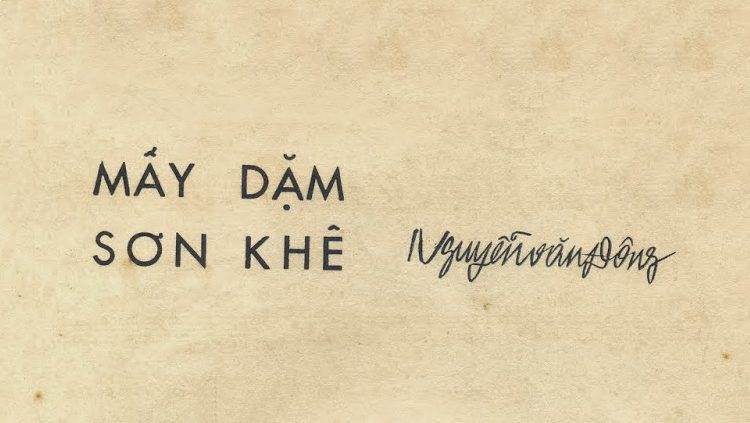 MẤY DẶM
SƠN KHÊ
Nguyễn văn Đông